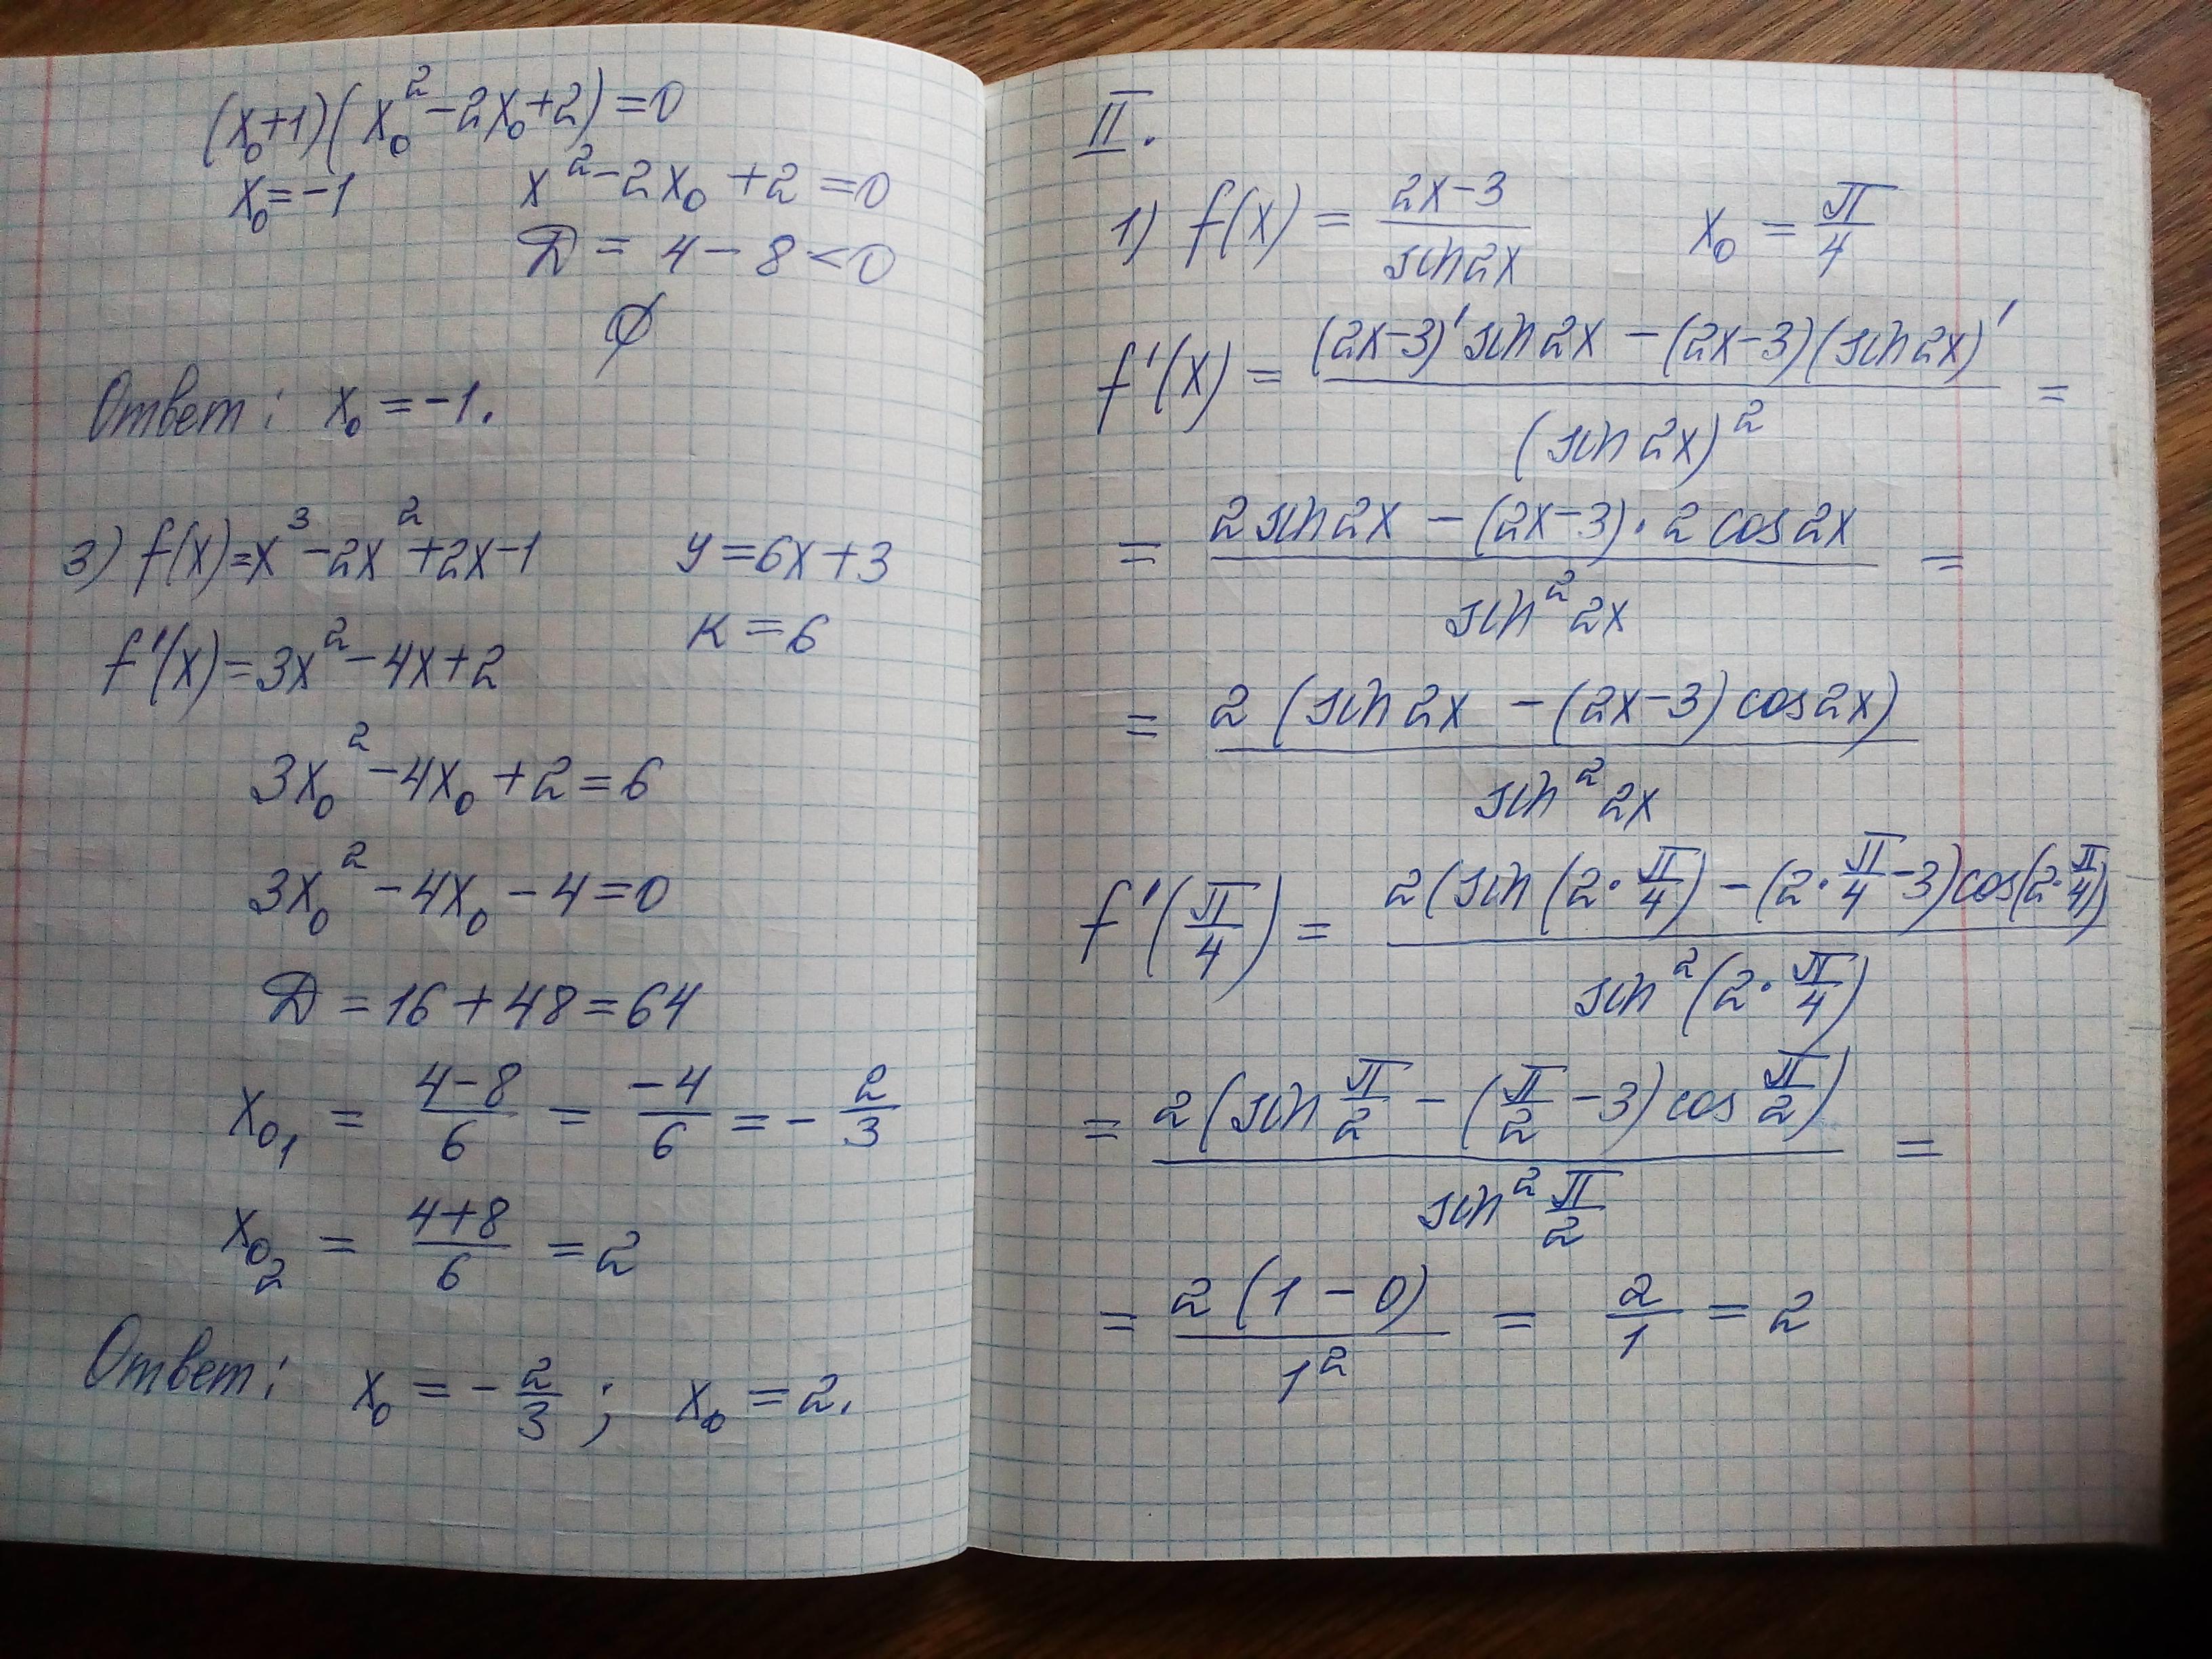 (x₀+1)(x₀²-2x₀+2)=0
x₀=-1 x²-2x₀+2=0
Д = 4-8<0
∅
Ответ: x₀=-1.
3) f(x)=x³-2x²+2x-1 y=6x+3
f'(x)=3x²-4x+2 к=6
3x₀²-4x₀+2=6
3x₀²-4x₀-4=0
Д=16+48=64
x₀₁ = (4-8)/6 = -4/6 = -2/3
x₀₂ = (4+8)/6 = 2
Ответ: x₀=-2/3; x₀=2.
II.
1) f(x) = (2x-3)/(sin2x) x₀ = π/4
f'(x) = ((2x-3)'sin2x-(2x-3)(sin2x)')/((sin2x)²) =
= (2sin2x-(2x-3)·2cos2x)/(sin²2x) =
= (2(sin2x-(2x-3)cos2x))/(sin²2x)
f'(π/4) = (2(sin(2·π/4)-(2·π/4-3)cos(2·π/4)))/(sin²(2·π/4))
= (2(sin π/2-(π/2-3)cos π/2))/(sin² π/2) =
= (2(1-0))/(1²) = 2/1 = 2